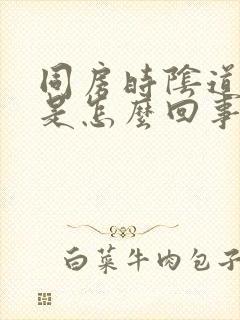 同房時陰道
是怎麼回事
白菜牛肉包子